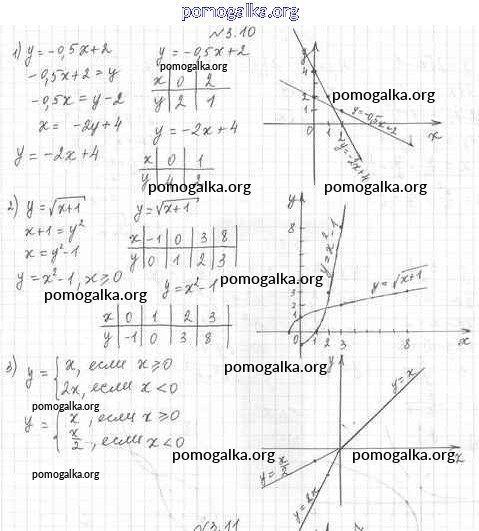 pomogalka.org
№3.10
1) y = -0,5x+2
-0,5x+2 = y
-0,5x = y-2
x = -2y+4
y = -2x+4
y = -0,5x+2
pomogalka.org
x | 0 | 2
y | 2 | 1
y = -2x+4
x | 0 | 1
y | 4 | 2
pomogalka.org
y
4
2
1
0
1
2
x
pomogalka.org
y=-0,5x+2
y=-2x+4
pomogalka.org
2) y = √x+1
x+1 = y²
x = y²-1
y = x²-1, x ≥ 0
pomogalka.org
y = √x+1
x | -1 | 0 | 3 | 8
y | 0 | 1 | 2 | 3
y = x²-1
pomogalka.org
x | 0 | 1 | 2 | 3
y | -1 | 0 | 3 | 8
y
8
3
2
1
0
1
2
3
8
x
y = x²-1
y = √x+1
pomogalka.org
3) y = { x, если x ≥ 0
2x, если x < 0
pomogalka.org
y = { x, если x ≥ 0
x/2, если x < 0
pomogalka.org
pomogalka.org
y
y = x
y = x/2
y = 2x
x
pomogalka.org
№3.11